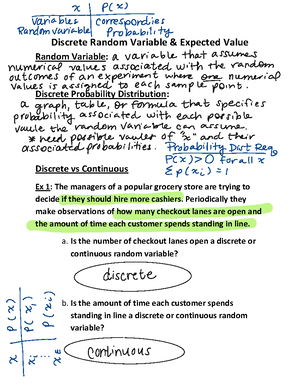 x | P(x)
Variables | correspondies
Random Variable | Probability
Discrete Random Variable & Expected Value
Random Variable: a variable that assumes
numerical values associated with the random
outcomes of an experiment where one numerical
values is assigned to each sample point.
Discrete Probability Distribution:
a graph, table, or formula that specifies
probability associated with each possible
vaule the random variable can assume.
* need possible vaules of "x" and their
associated probabilities. Probability Dist Req
P(x) > 0 for all x
Σ p(xi) = 1
Discrete vs Continuous
Ex 1: The managers of a popular grocery store are trying to
decide if they should hire more cashiers. Periodically they
make observations of how many checkout lanes are open and
the amount of time each customer spends standing in line.
a. Is the number of checkout lanes open a discrete or
continuous random variable?
discrete
b. Is the amount of time each customer spends
standing in line a discrete or continuous random
variable?
continuous
x | P(x)
xi | P(xi)
P(xi)